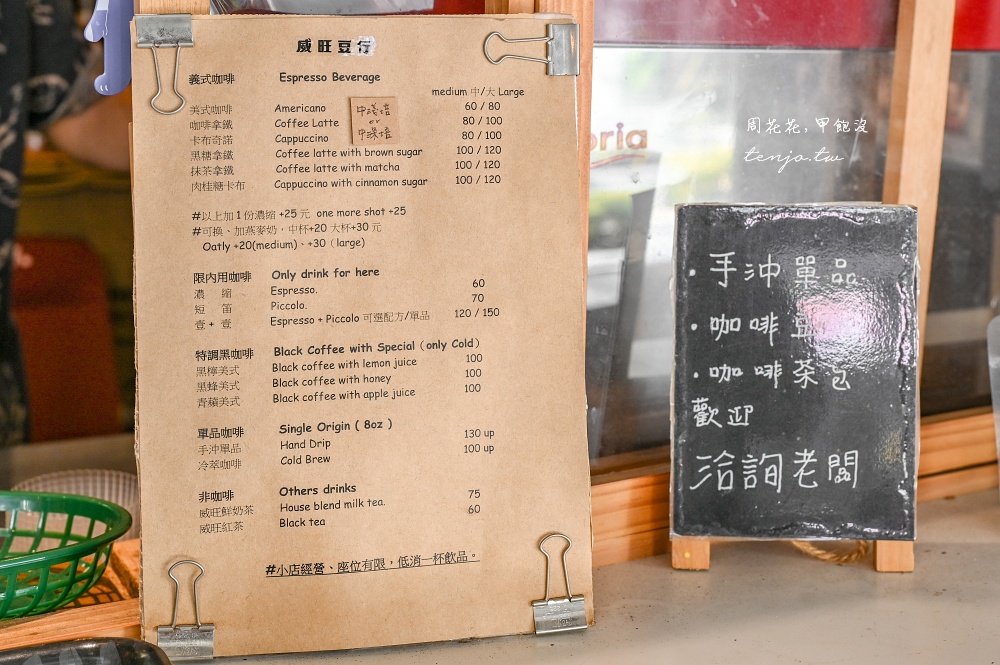 威旺豆行
義式咖啡 Espresso Beverage
medium 中/大 Large
美式咖啡 Americano 60 / 80
咖啡拿鐵 Coffee Latte 80 / 100
卡布奇諾 Cappuccino 80 / 100
黑糖拿鐵 Coffee latte with brown sugar 100 / 120
抹茶拿鐵 Coffee latte with matcha 100 / 120
肉桂糖卡布 Cappuccino with cinnamon sugar 100 / 120
中淺焙
or
中深焙
#以上加1份濃縮 +25 元 one more shot +25
#可換、加燕麥奶,中杯+20 大杯+30元
Oatly +20(medium)、+30（large)
限內用咖啡 Only drink for here
濃 縮 Espresso. 60
短 笛 Piccolo. 70
壹 + 壹 Espresso + Piccolo 可選配方/單品 120 / 150
特調黑咖啡 Black Coffee with Special（only Cold）
黑檸美式 Black coffee with lemon juice 100
黑蜂美式 Black coffee with honey 100
青蘋美式 Black coffee with apple juice 100
單品咖啡 Single Origin ( 8oz )
手沖單品 Hand Drip 130 up
冷萃咖啡 Cold Brew 100 up
非咖啡 Others drinks
威旺鮮奶茶 House blend milk tea. 75
威旺紅茶 Black tea 60
#小店經營、座位有限，低消一杯飲品。
oria
周花花,甲飽沒
tenjo.tw
·手沖單品
·咖啡豆
·咖啡茶包
歡迎
洽詢老闆